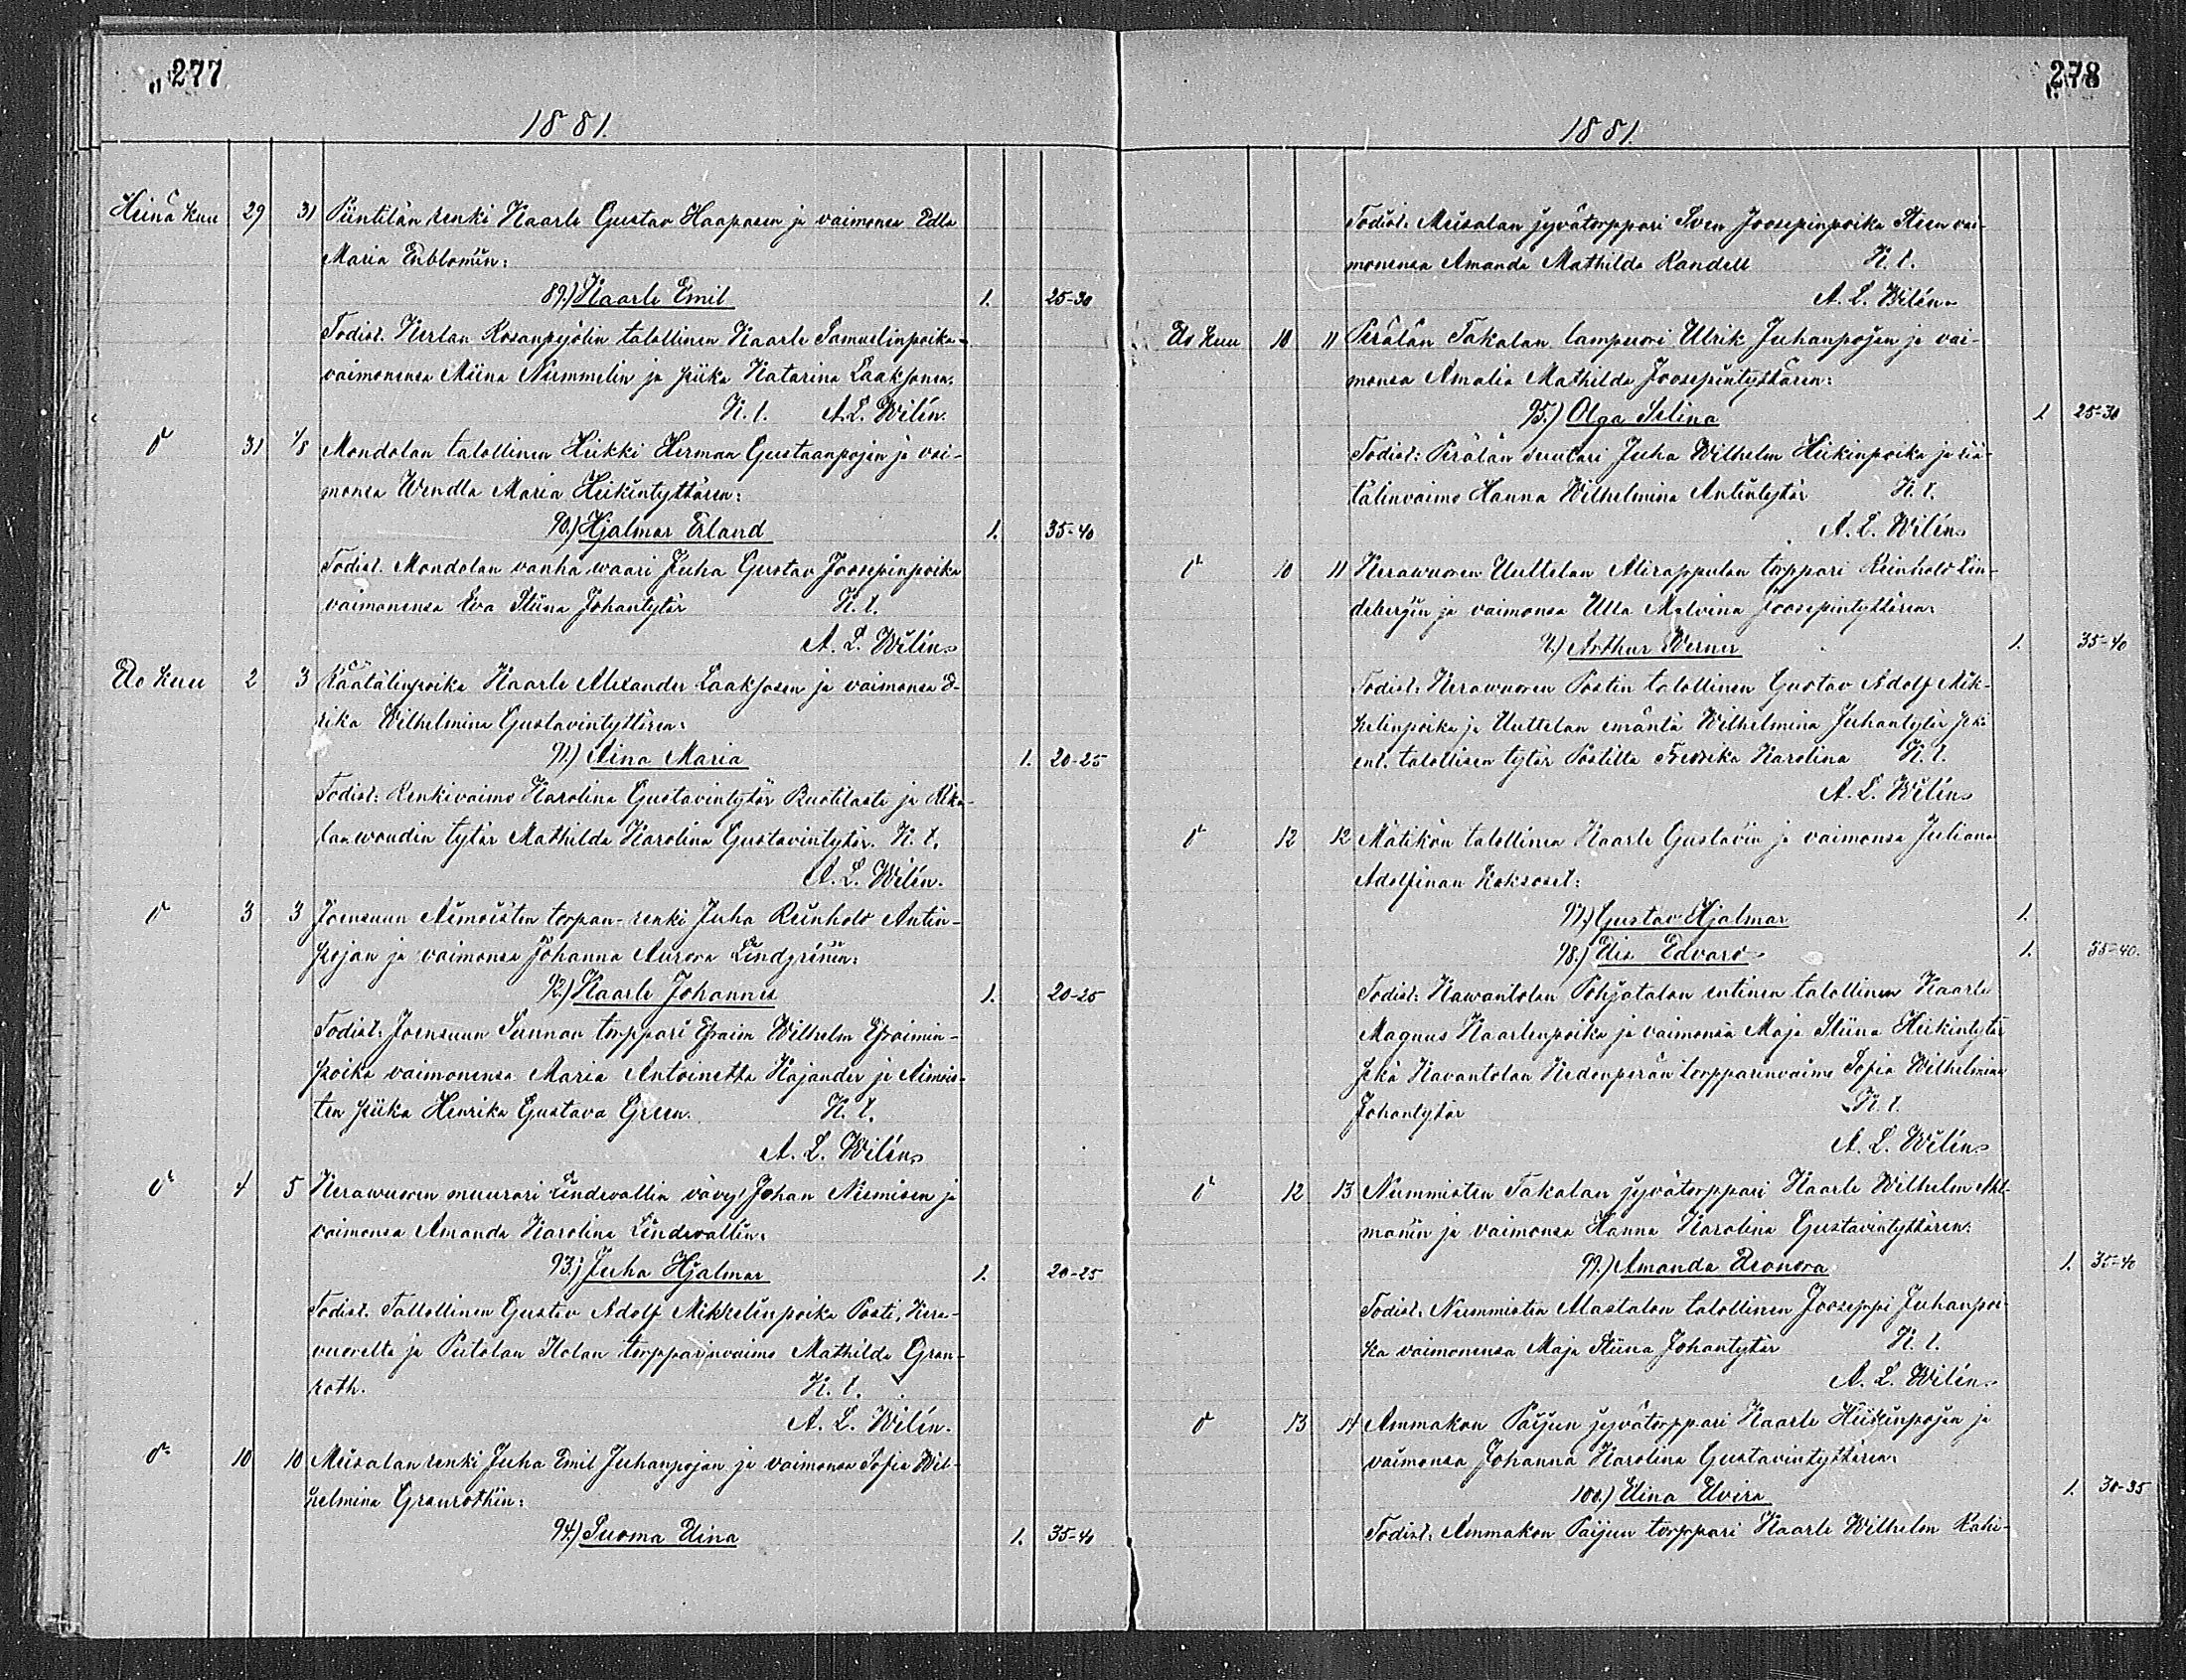 277
1881.
Heinä kuu 29 31 Piintilän renki Kaarle Gustav Haapasen ja vaimonsa Edla
Maria Enblomin:
89.) Kaarle Emil 1. 25-30
Todist. Kerlan Rosanpyölin talollinen Kaarle Samuelinpoika
vaimonensa Miina Nummelin ja piika Katarina Laaksonen.
K. t. A. L. Wilén.
d:o 31 1/8 Mondolan talollinen Heikki Herman Gustaanpojan ja vai-
monsa Wendla Maria Heikintyttären:
90.) Hjalmar Erland 1. 35-40
Todist. Mondolan vanha waari Juha Gustav Joosepinpoika
vaimonensa Eva Stiina Johantytär K. t.
A. L. Wilén
Elo kuu 2 3 Räätälinpoika Kaarle Alexander Laaksosen ja vaimonsa E-
rika Wilhelmina Gustavintyttären:
91.) Aina Maria 1. 20-25
Todist: Renkivaimo Karolina Gustavintytär Ruotilasta ja Rika-
lan woudin tytär Mathilda Karolina Gustavintytär. K. t.
A. L. Wilén.
d:o 3 3 Joensuun Aimoisten torpan-renki Juha Reinhold Antin-
pojan ja vaimonsa Johanna Aurora Lindgrénin:
92.) Kaarle Johannes 1. 20-25
Todist: Joensuun Sunnan torppari Efraim Wilhelm Efraimin-
poika vaimonensa Maria Antoinetta Kajander ja Aimois-
ten piika Henrika Gustava Green. K. t.
A. L. Wilén
d:o 4 5 Kerawuoren muurari Lindevallin vävyn Johan Niemisen ja
vaimonsa Amanda Karolina Lindevallin:
93.) Juha Hjalmar 1. 20-25
Todist. Tallollinen Gustav Adolf Mikkelinpoika Posti, Kera-
vuorelta ja Piitolan Ilolan torpparinvaimo Mathilda Gran-
roth. K. t.
A. L. Wilén.
d:o 10 10 Meisalan renki Juha Emil Juhanpojan ja vaimonsa Sofia Wil-
helmina Granrothin:
94.) Suoma Elina 1. 35-40
278
1881.
Todist. Meisalan jyvätorppari Sven Joosepinpoika Steen vai-
monensa Amanda Mathilda Randell K. t.
A. L. Wilén
Elo kuu 10 11 Perälän Takalan lampuori Ulrik Juhanpojan ja vai-
monsa Amalia Mathilda Joosepintyttären:
95.) Olga Selina 1 25-30
Todist: Perälän suutari Juha Wilhelm Heikinpoika ja rää-
tälinvaimo Hanna Wilhelmina Antintytär K. t.
A. L. Wilén
d:o 10 11 Kerawuoren Uuttelan Alirappulan torppari Reinhold Lin-
debergin ja vaimonsa Ulla Malvina Joosepintyttären:
96.) Arthur Werner 1. 35-40
Todist: Kerawuoren Postin talollinen Gustav Adolf Mik-
kelinpoika ja Uuttelan emäntä Wilhelmina Juhantytär sekä
ent. talollisen tytär Postilta Fredrika Karolina K. t.
A. L. Wilén
d:o 12 12 Mätikön talollinen Kaarle Gustavin ja vaimonsa Juliana
Adolfinan kaksoset:
97.) Gustav Hjalmar 1.
98.) Elis Edvard 1. 35-40.
Todist: Kawantolan Pohjatalon entinen talollinen Kaarle
Magnus Kaarlenpoika ja vaimonsa Maja Stiina Heikintytär
sekä Kavantolan Kedonperän torpparinvaimo Sofia Wilhelmina
Johantytär K. t.
A. L. Wilén
d:o 12 13 Nummisten Takalan jyvätorppari Kaarle Wilhelm Ahl-
manin ja vaimonsa Hanna Karolina Gustavintyttären:
99.) Amanda Eleonora 1. 35-40
Todist. Nummisten Alastalon talollinen Jooseppi Juhanpoi-
ka vaimonensa Maja Stiina Johantytär K. t.
A. L. Wilén
d:o 13 14 Ammakon Paijun jyvätorppari Kaarle Heikinpojan ja
vaimonsa Johanna Karolina Gustavintyttären:
100.) Elina Elvira 1. 30-35
Todist. Ammakon Paijun torppari Kaarle Wilhelm Kahi-